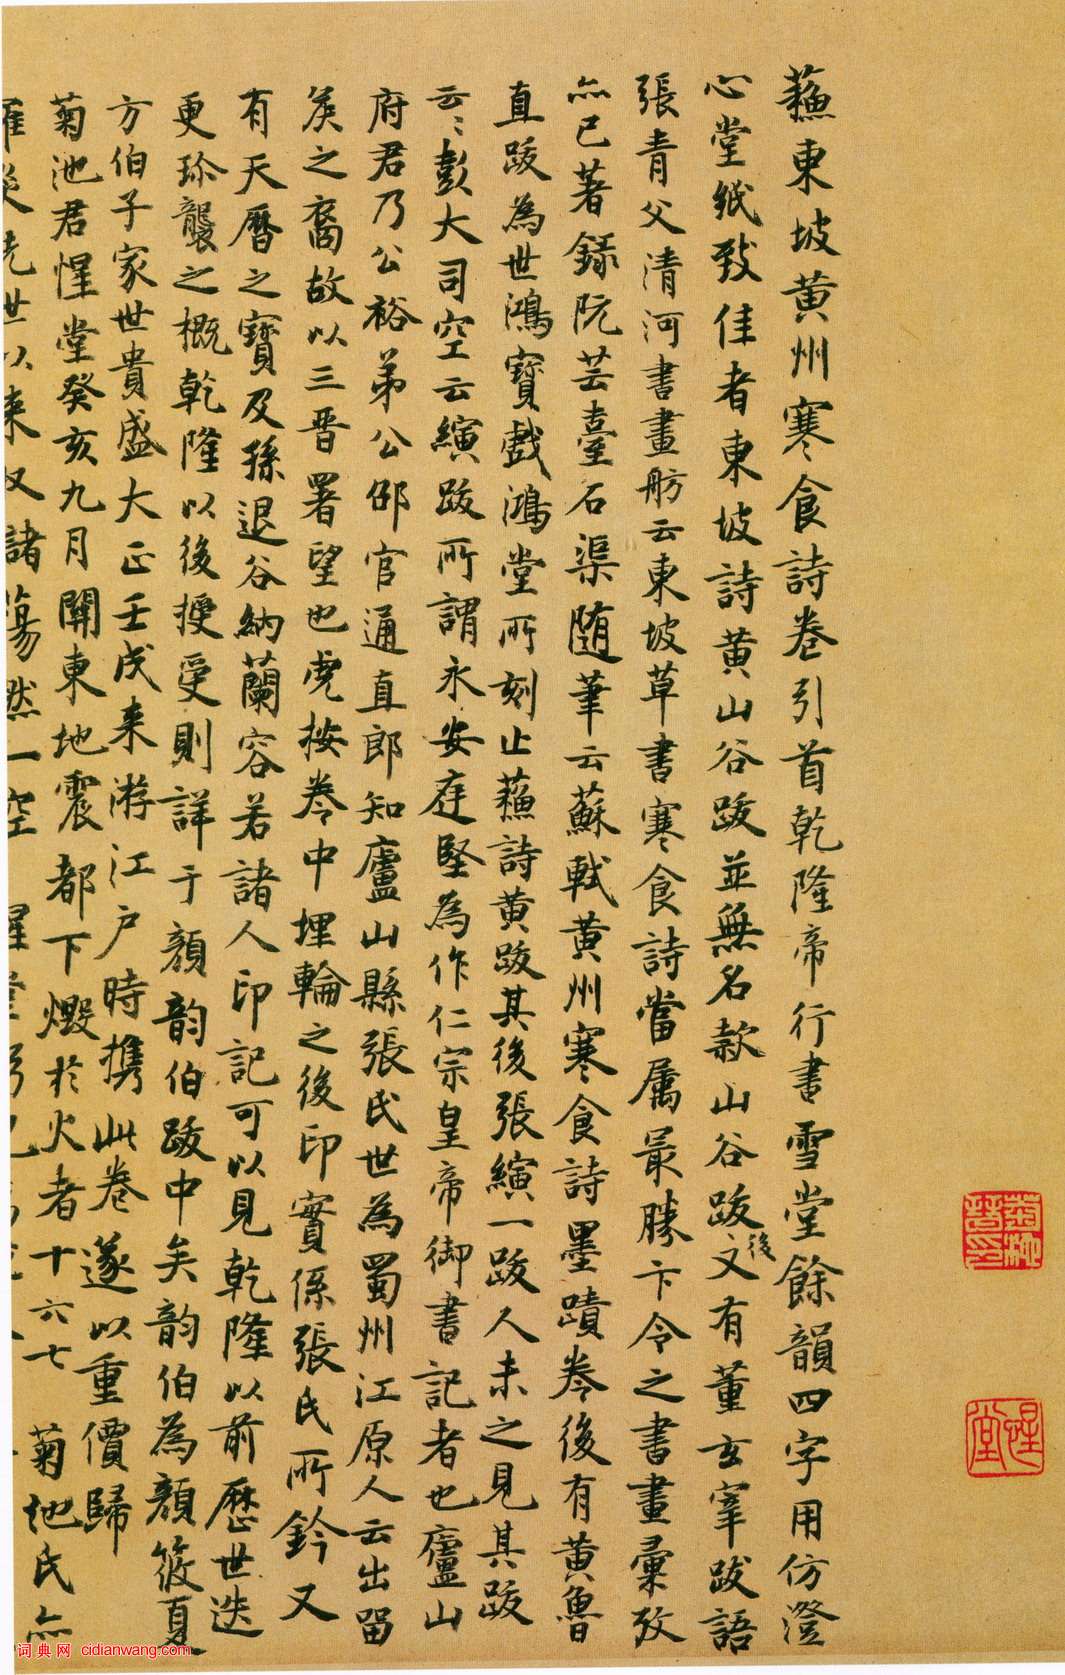 蘓東坡黄州寒食詩卷引首乾隆帝行書雪堂餘韻四字用仿澄
心堂紙致佳者東坡詩黄山谷跋並無名款山谷跋後文有董玄宰跋語
張青父清河書畫舫云東坡草書寒食詩當属最勝卞令之書畫彙攷
亦已著録阮芸臺石渠随筆云蘇軾黄州寒食詩墨蹟卷後有黄魯
直跋為世鴻寶戲鴻堂所刻止蘓詩黄跋其後張縯一跋人未之見其跋
云〻彭大司空云縯跋所謂永安庭堅為作仁宗皇帝御書記者也廬山
府君乃公裕弟公邵官通直郎知廬山縣張氏世為蜀州江原人云出留
矦之裔故以三晋署望也虎按卷中埋輪之後印實係張氏所鈐又
有天暦之寶及孫退谷納蘭容若諸人印記可以見乾隆以前歴世迭
更珍襲之概乾隆以後授受則詳于顔韵伯跋中矣韵伯為顔筱夏
方伯子家世貴盛大正壬戌来游江户時携此卷遂以重價歸
菊池君惺堂癸亥九月關東地震都下燬於火者十六七菊池氏亦
先世以来 諸 蕩然一空 惺堂
菊池
晉印
惺堂
词典网 cidianwang.com